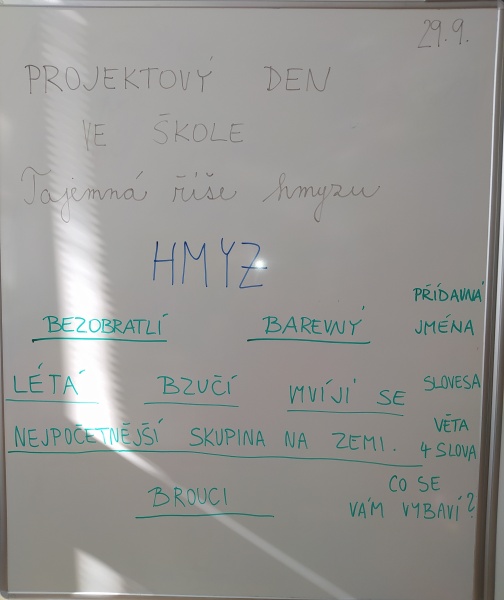 29.9.
PROJEKTOVÝ DEN
VE ŠKOLE
Tajemná říše hmyzu
HMYZ
PŘÍDAVNÁ
BEZOBRATLÍ BAREVNÝ JMÉNA
LÉTÁ BZUČÍ MVÍJÍ SE SLOVESA
NEJPOČETNĚJŠÍ SKUPINA NA ZEMI. VĚTA
4 SLOVA
BROUCI CO SE
VÁM VYBAVÍ?